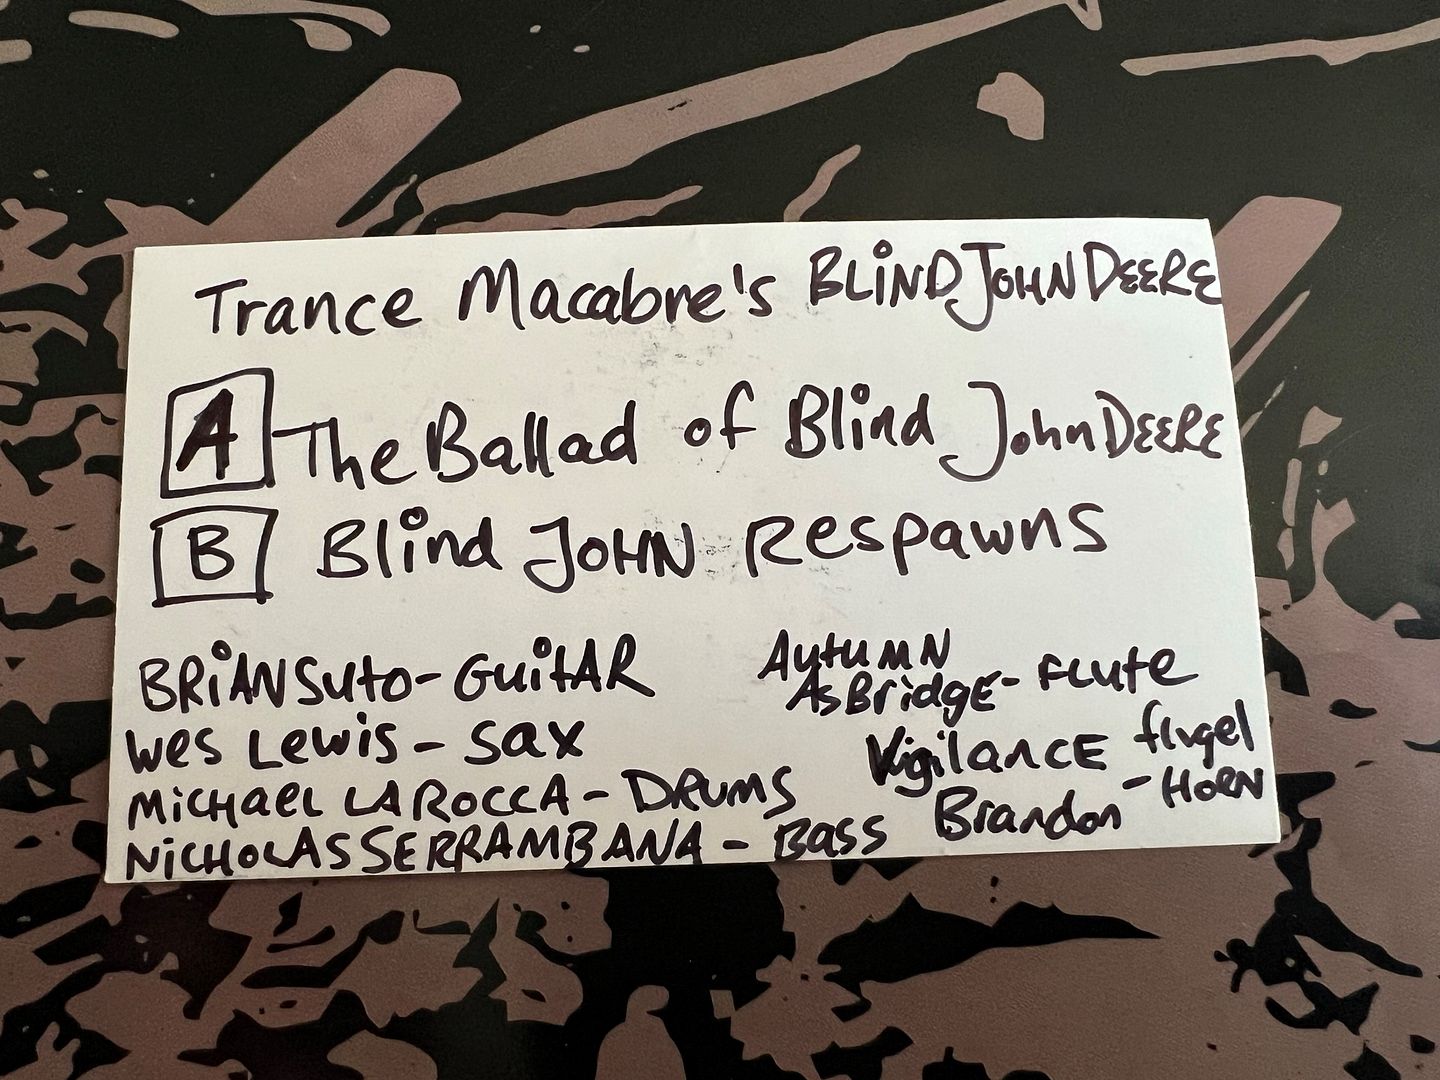 Trance Macabre's BLiND JOHN DEERE
A The Ballad of Blind John DEERE
B Blind JOHN Respawns
BRiAN Suto - GuitAR
Wes Lewis - Sax
MiCHael LA ROCCA - DRUMS
NiCHOLAS SERRAMBANA - Bass
AutuMN
AsBridgE - FLute
VigiLANCE flugel
Brandon - HORN